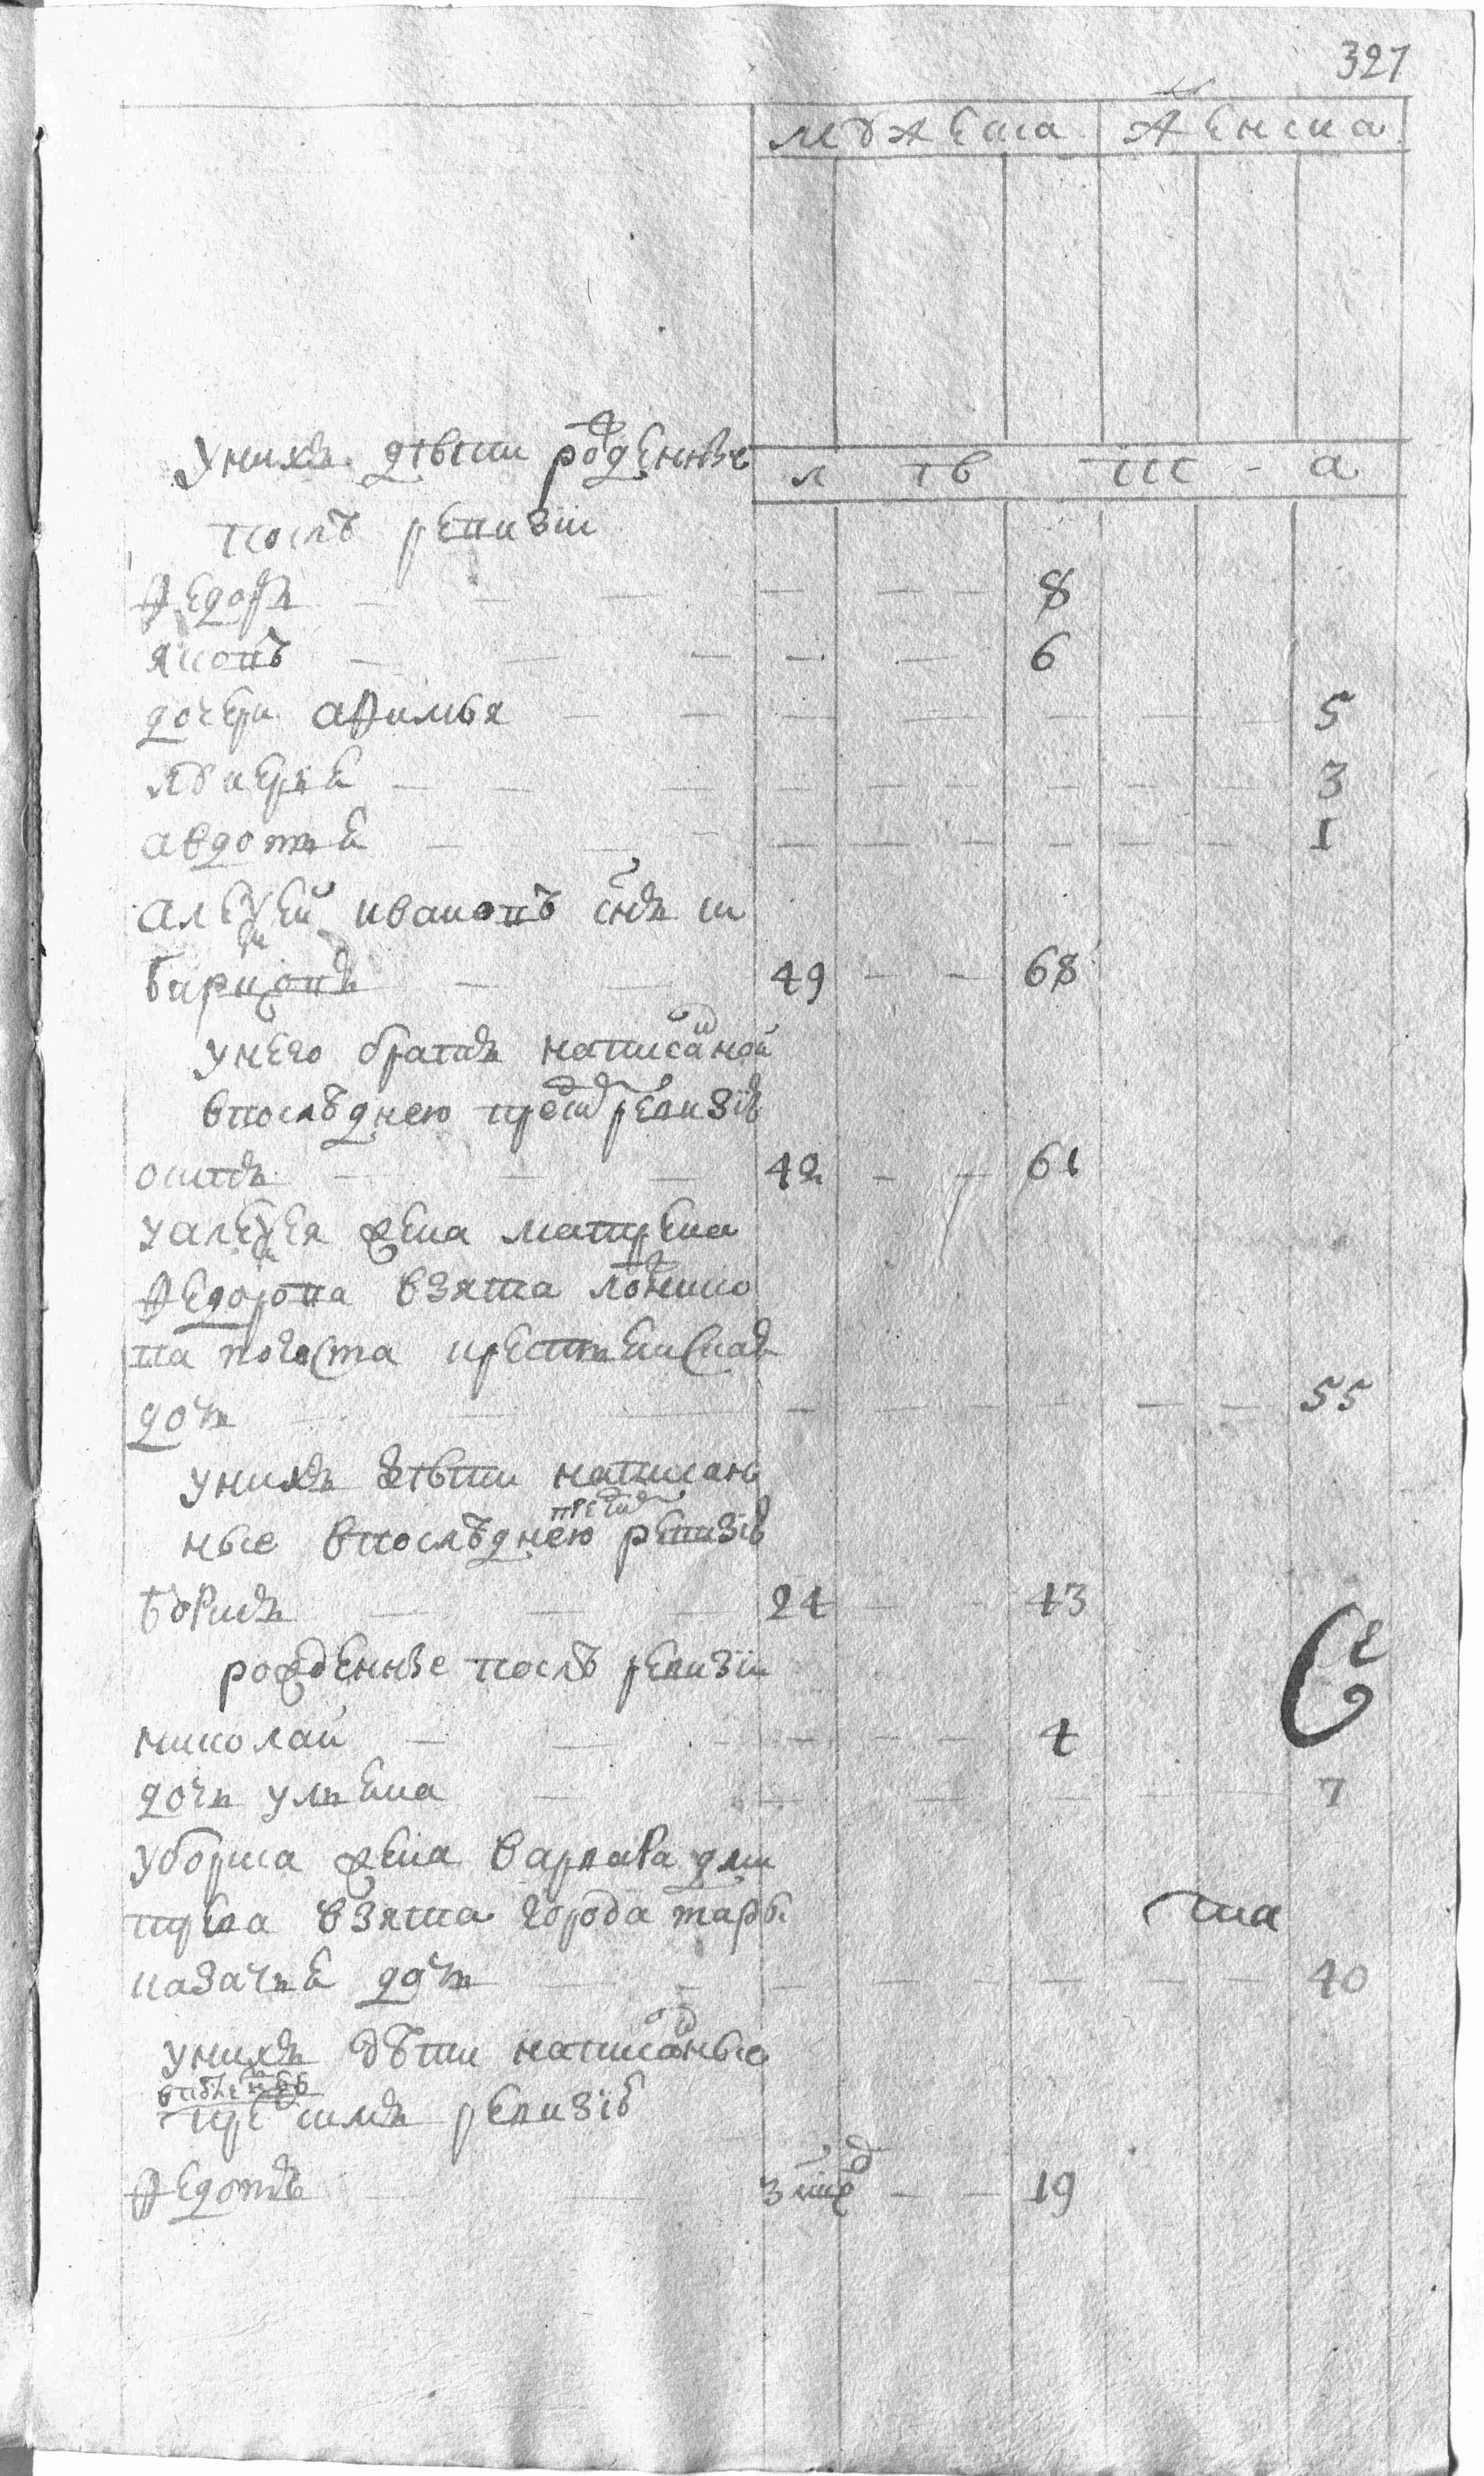 327
мужеска женска
У нихъ дѣти рожденные
лѣта
послѣ ревизіи
Федоръ — — — 8
яковъ — — — 6
дочери афимья — — — 5
лукерья — — — 3
авдотья — — — 1
алексей ивановъ снъ ш
барсковъ — — 49 — — 68
у него братъ написанной
в последнею пред ревизiю
осипъ — — — 42 — — 61
у алексея жена матрена
Федорова взята ложнико
ва погоста крестьенскаѧ
дочь — — — 55
у нихъ дѣти написан
ные в последнею пред ревизiю
борисъ — — — 24 — — 43
рожденные послѣ ревизiи
николай — — — 4
дочь ульена — — — 7
у бориса жена варвара дми
трева взята города тары
ска
казачьѧ дочь — — — 40
у нихъ дѣти написанные
ревизiѣ
Федотъ — — 3 — — 19